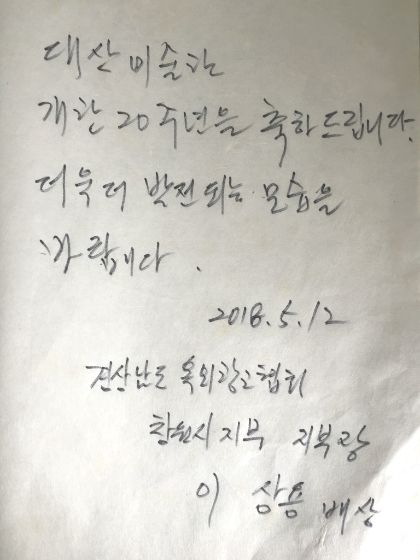 대산미술관
개관 20주년을 축하드립니다.
더욱더 발전되는 모습을
바랍니다.
2018.5.12
경상남도 옥외광고협회
창원시지부 지부장
이 상용 배상